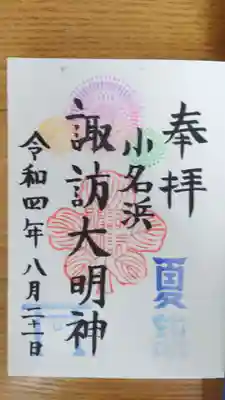 奉拝
夏詣
小名浜
諏訪大明神
令和四年八月二十一日